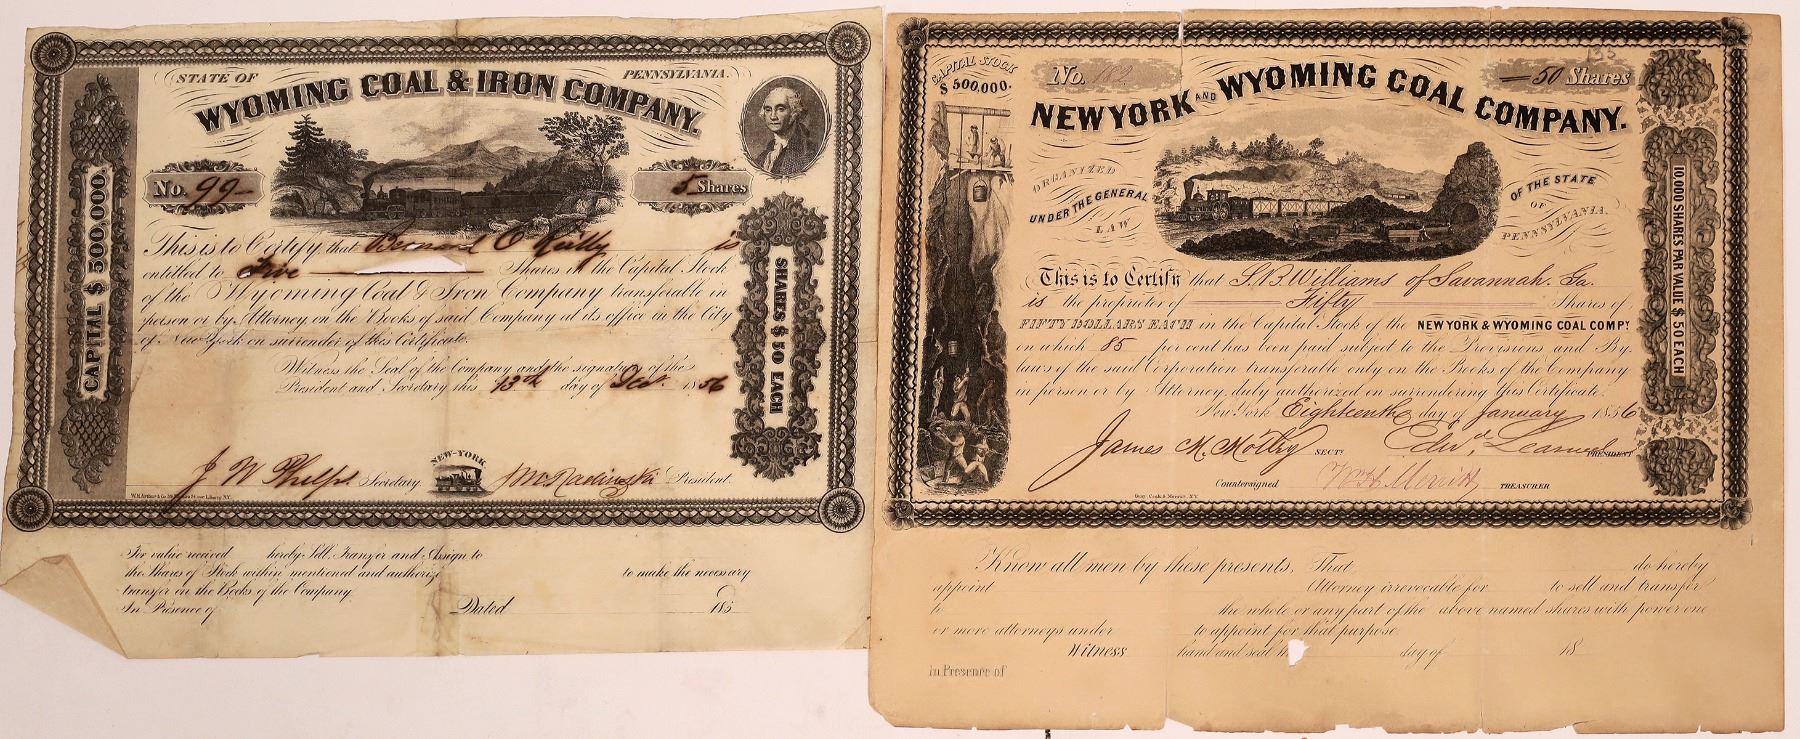 STATE OF PENNSYLVANIA.
WYOMING COAL & IRON COMPANY.
No. 99 5 Shares
CAPITAL $ 500,000.
SHARES $ 50 EACH
This is to Certify that Bernard O Reilly is
entitled to Five Shares in the Capital Stock
of the Wyoming Coal & Iron Company transferable in
person or by Attorney on the Books of said Company at its office in the City
of New York on surrender of this Certificate.
Witness the Seal of the Company and the signature of the
President and Secretary this 13th day of Dec. 1856
NEW-YORK
J W Phelps Secretary. President.
For value received hereby Sell, Transfer and Assign to
the Shares of Stock within mentioned and authorize to make the necessary
transfer on the Books of the Company.
In Presence of
Dated 185
CAPITAL STOCK
$ 500,000.
No. 182
133
50 Shares
NEW YORK AND WYOMING COAL COMPANY.
ORGANIZED
UNDER THE GENERAL
LAW
OF THE STATE
OF
PENNSYLVANIA.
10,000 SHARES PAR VALUE $ 50 EACH
This is to Certify that S. B. Williams of Savannah. Ga.
is the proprietor of Fifty Shares of
FIFTY DOLLARS EACH in the Capital Stock of the NEW YORK & WYOMING COAL COMPY
on which 85 per cent has been paid subject to the Provisions and By-
laws of the said Corporation transferable only on the Books of the Company
in person or by Attorney, duly authorized on surrendering this Certificate.
New York Eighteenth day of January 1856
James M. Motley SECTY Edwd. PRESIDENT
Countersigned W H Merritt TREASURER
Know all men by these presents, That do hereby
appoint Attorney irrevocable for to sell and transfer
to the whole or any part of the above named shares with power one
or more attorneys under to appoint for that purpose.
Witness hand and seal day of 18
In Presence of